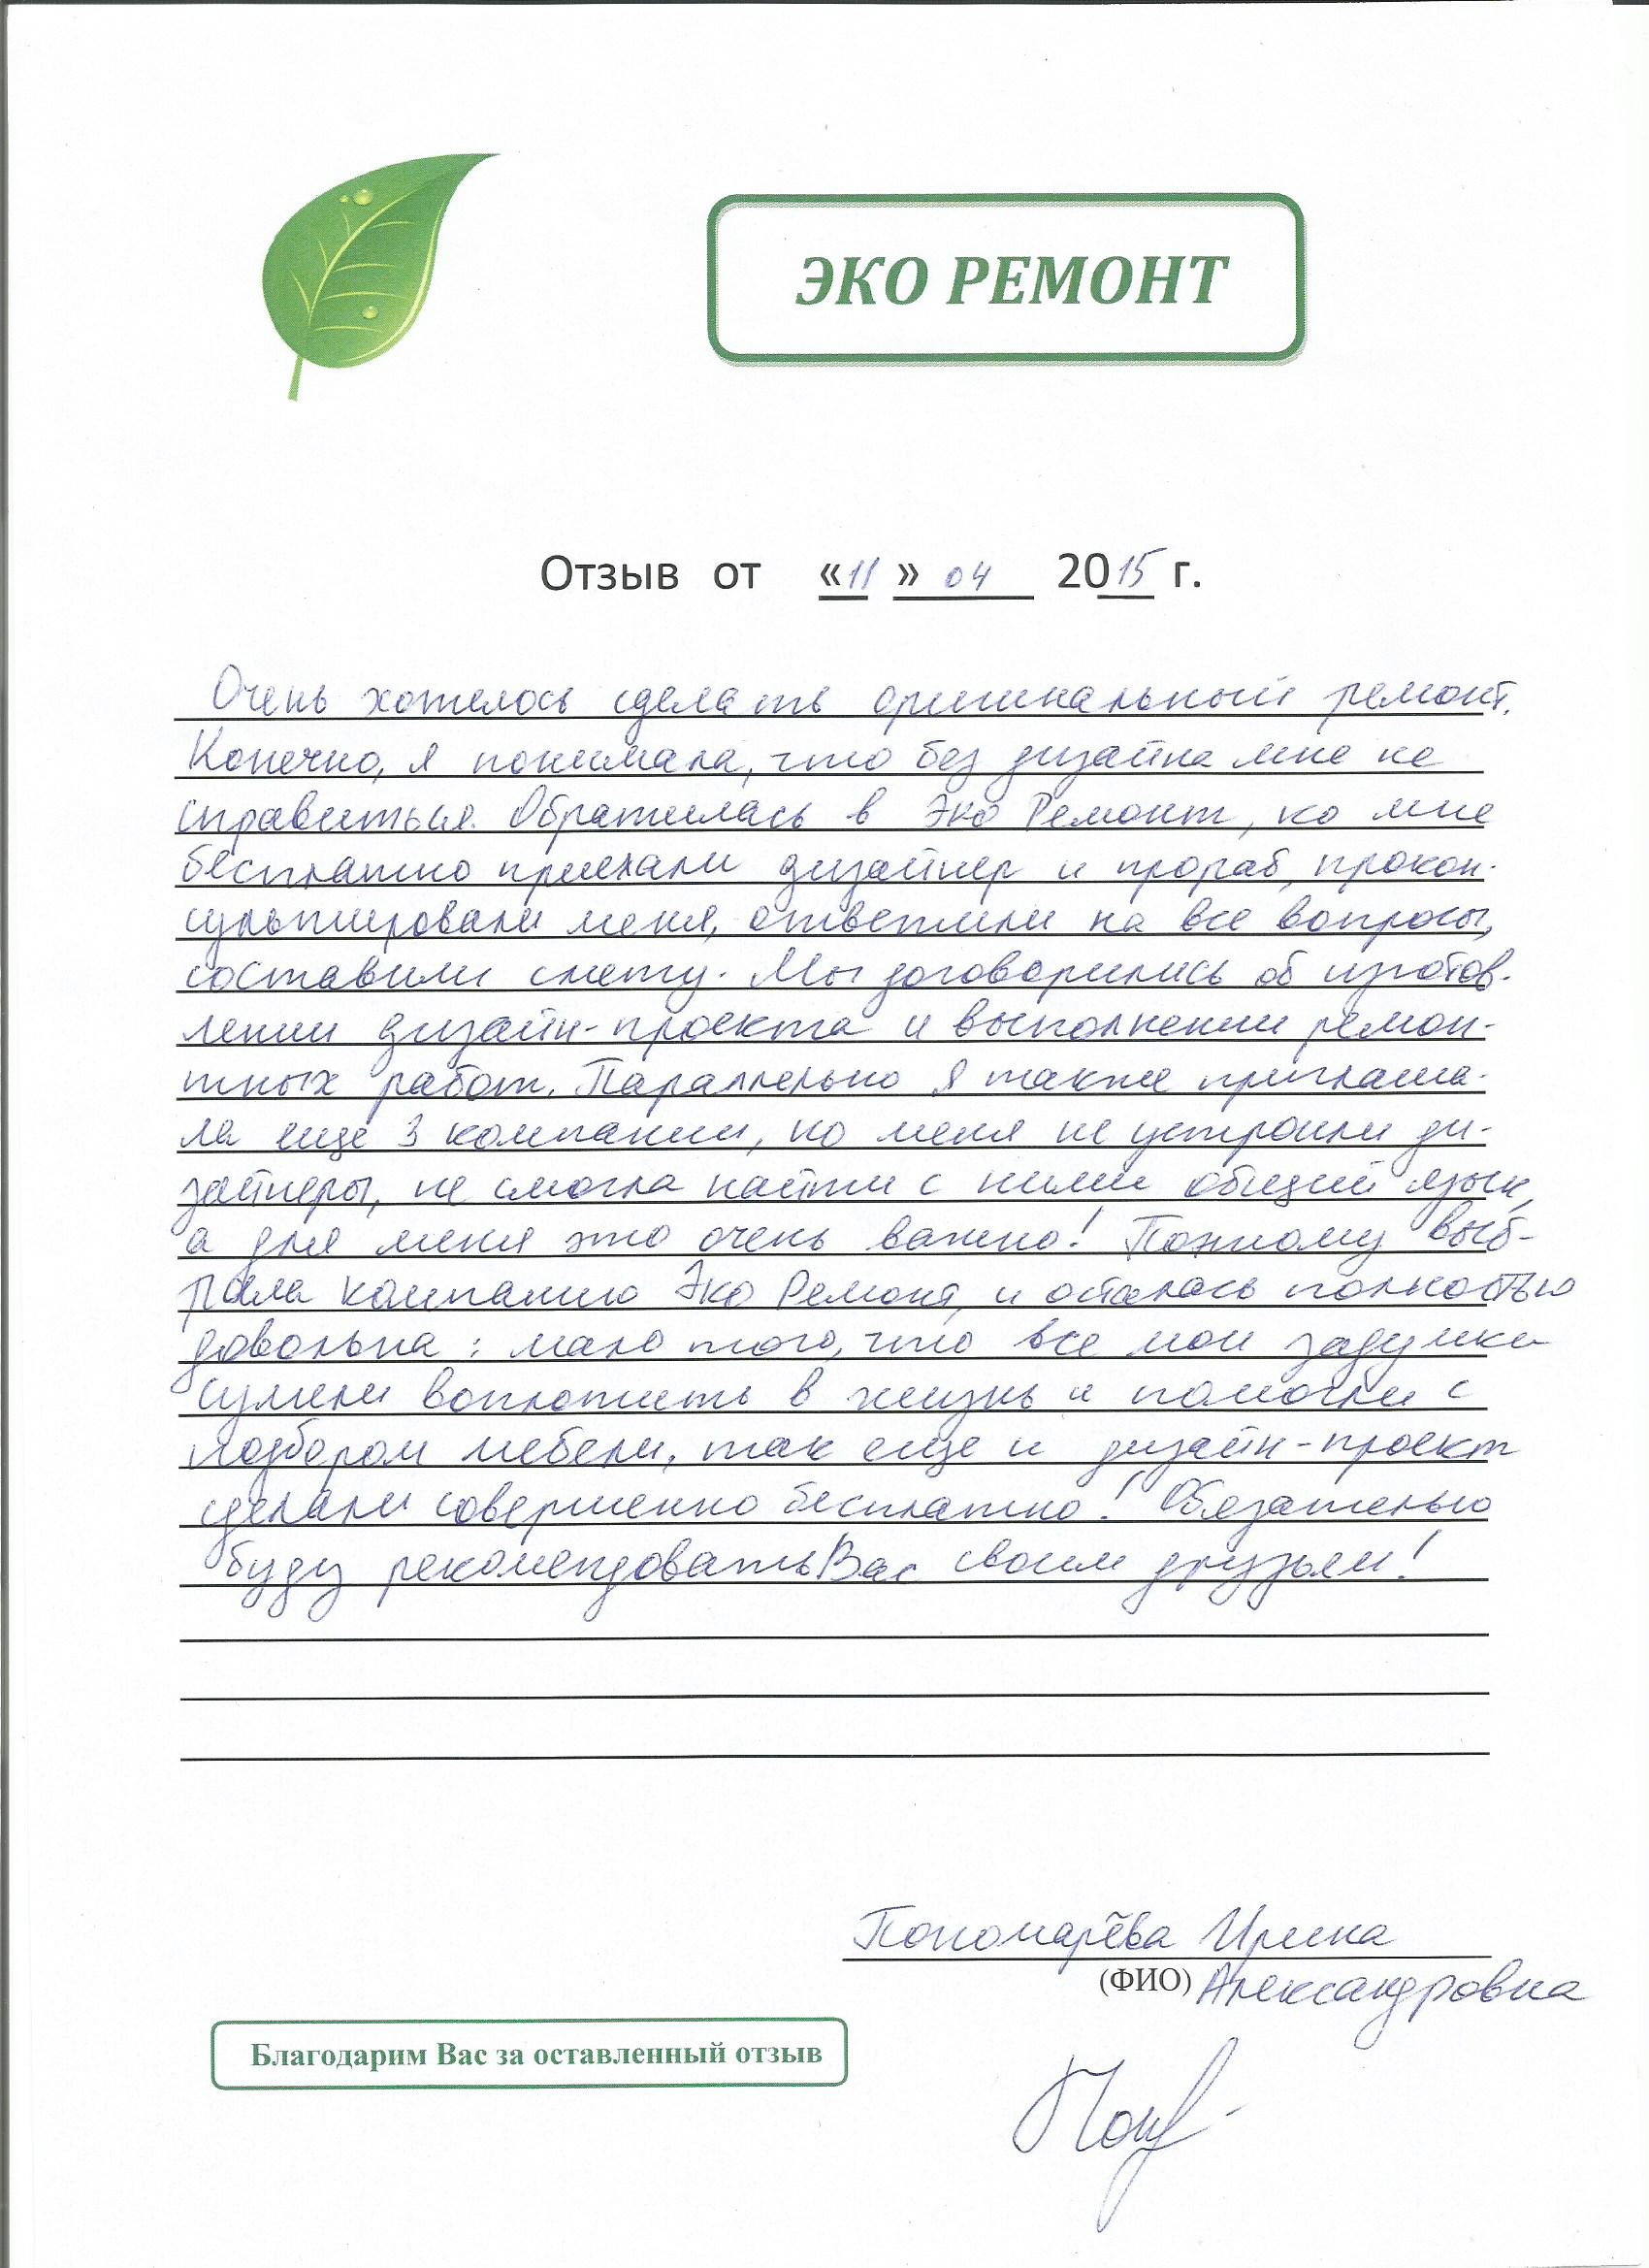 ЭКО РЕМОНТ
Отзыв от «11» 04 2015 г.
Очень хотелось сделать оригинальный ремонт.
Конечно, я понимала, что без дизайна мне не
справиться. Обратилась в Эко Ремонт, ко мне
бесплатно приехали дизайнер и прораб, прокон-
сультировали меня, ответили на все вопросы,
составили смету. Мы договорились об изготов-
лении дизайн-проекта и выполнении ремон-
тных работ. Параллельно я также приглаша-
ла еще 3 компании, но меня не устроили ди-
зайнеры, не смогла найти с ними общий язык,
а для меня это очень важно! Поэтому выб-
рала компанию Эко Ремонт, и осталась полностью
довольна: мало того, что все мои задумки
сумели воплотить в жизнь и помогли с
подбором мебели, так еще и дизайн-проект
сделали совершенно бесплатно! Обязательно
буду рекомендовать Вас своим друзьям!
Пономарёва Ирина
(ФИО) Александровна
Благодарим Вас за оставленный отзыв